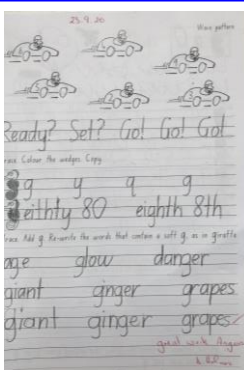 23.9.20
Wave pattern
Ready? Set? Go! Go! Go!
Trace. Colour the wedges. Copy.
g y q g
eighty 80 eighth 8th
Trace. Add g. Re-write the words that contain a soft g, as in giraffe
age glow danger
giant ginger grapes
giant ginger grapes
great work